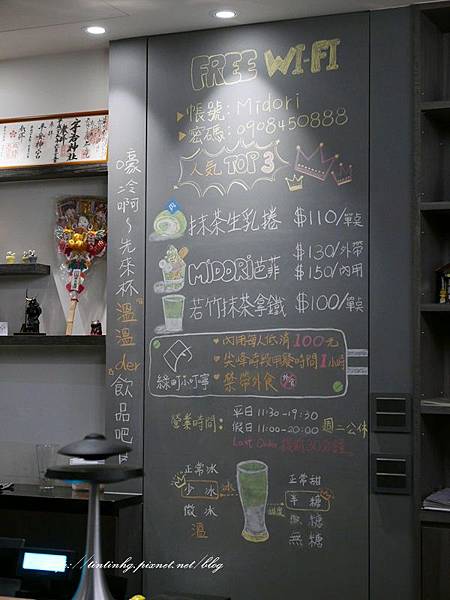 FREE WI-FI
帳號: Midori
密碼: 0908450888
人氣 TOP 3
抹茶生乳捲 $110/單点
MiDORi芭菲 $130/外帶
$150/內用
若竹抹茶拿鐵 $100/單点
內用每人低消100元
尖峰時段用餐時間1小時
禁帶外食
綠町小叮寧
營業時間:
平日 11:30-19:30
假日 11:00-20:00 週二公休
Last Order 提前30分鐘
正常冰
少冰
微冰
溫
冰
甜度
正常甜
半糖
微糖
無糖
嚎冷啊~先來杯溫溫der飲品吧
http://tintinhg.pixnet.net/blog